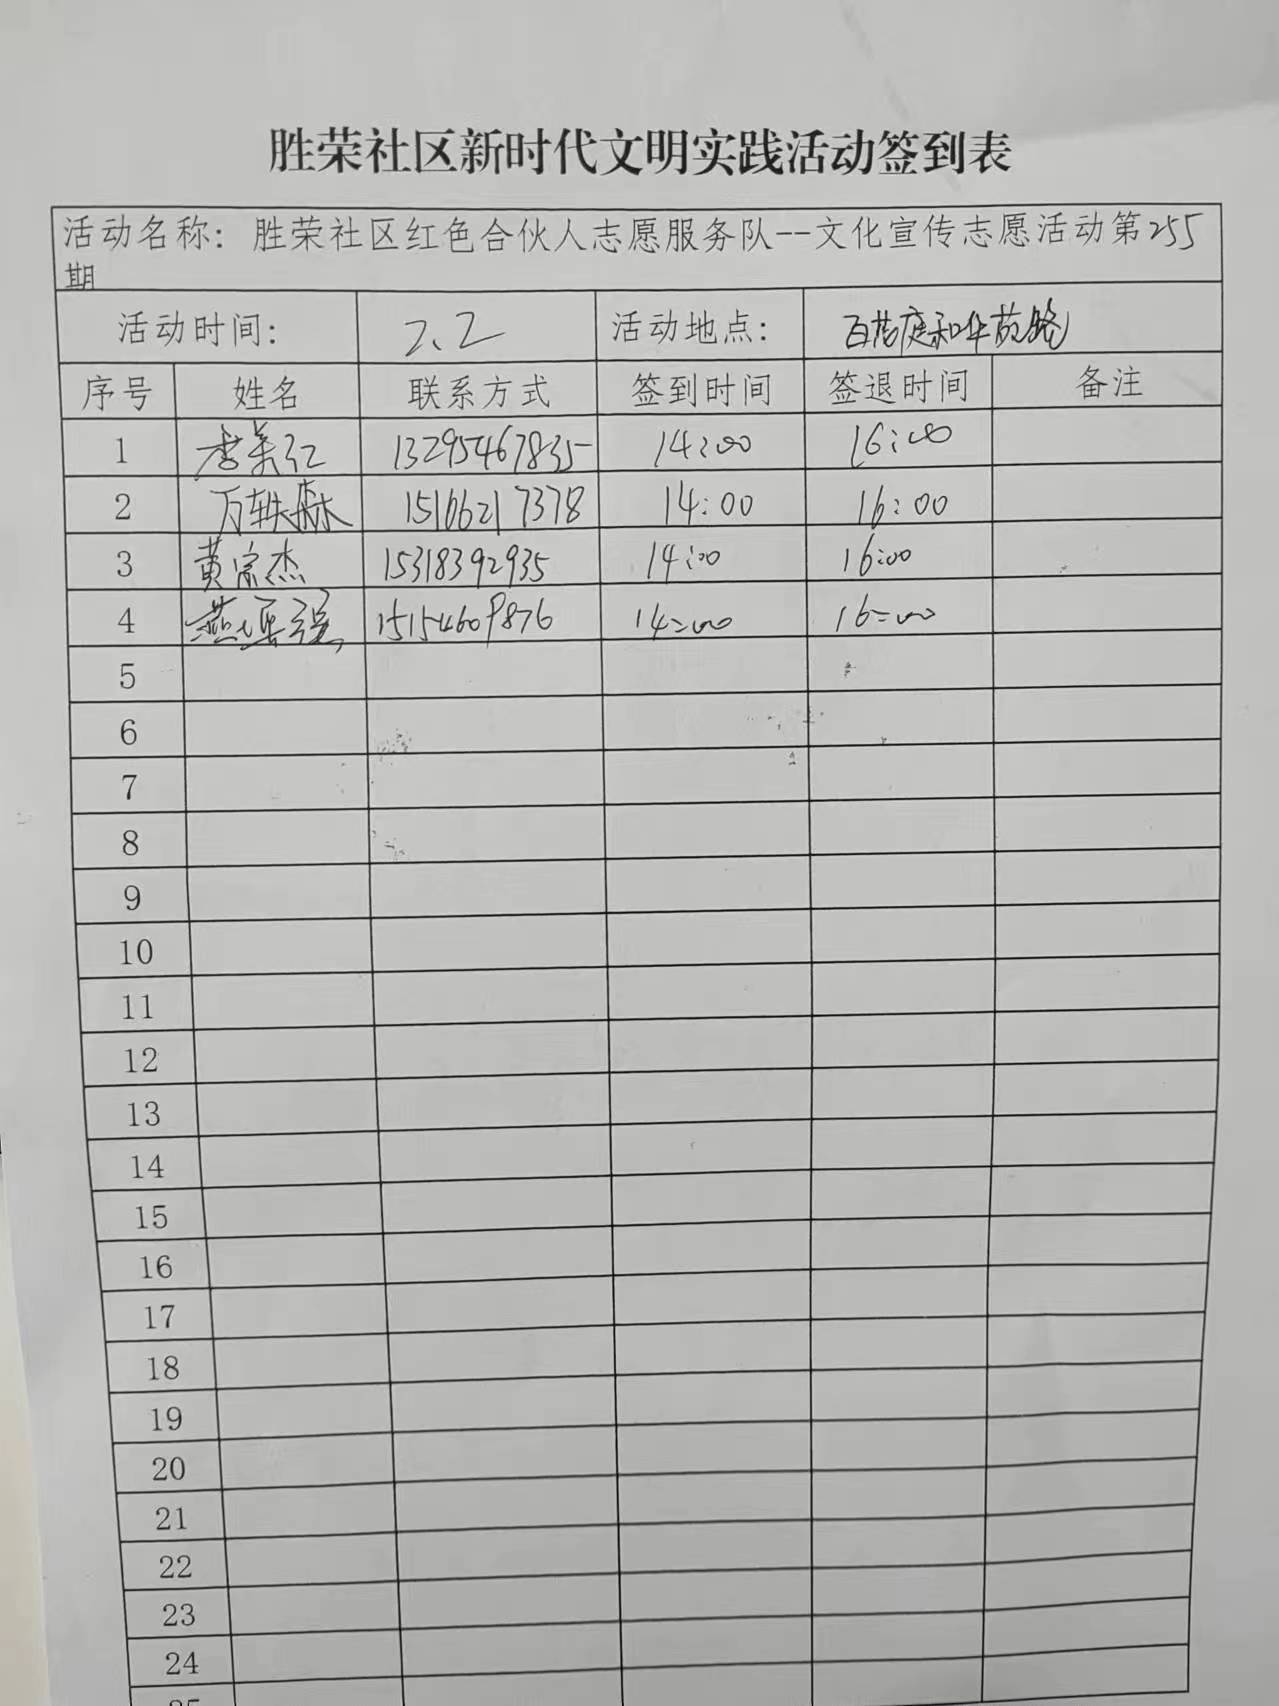 胜荣社区新时代文明实践活动签到表
活动名称：胜荣社区红色合伙人志愿服务队--文化宣传志愿活动第255
期
活动时间： 2、2 活动地点： 百花庭和华苑路
序号 姓名 联系方式 签到时间 签退时间 备注
1 李美红 13295467835 14:00 16:00
2 万轶森 15166217378 14:00 16:00
3 黄宗杰 15318392935 14:00 16:00
4 燕 强 15154609876 14:00 16:00
5
6
7
8
9
10
11
12
13
14
15
16
17
18
19
20
21
22
23
24
25